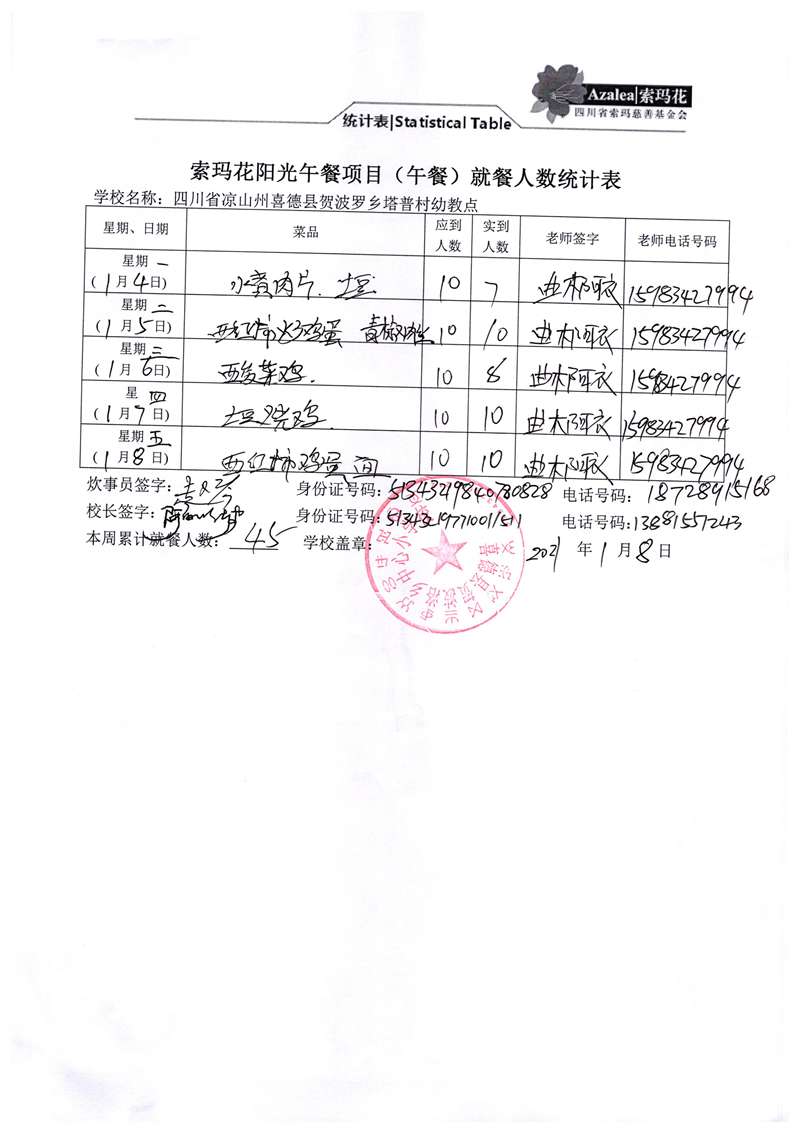 Azalea|索玛花
四川省索玛慈善基金会
统计表|Statistical Table
索玛花阳光午餐项目（午餐）就餐人数统计表
学校名称：四川省凉山州喜德县贺波罗乡塔普村幼教点
星期、日期 菜品 应到人数 实到人数 老师签字 老师电话号码
星期 一 (1月4日) 水煮肉片.土豆 10 7 曲木阿衣 15983427994
星期 二 (1月5日) 西红柿炒鸡蛋 青椒 10 10 曲木阿衣 15983427994
星期 三 (1月6日) 酸菜鸡. 10 8 曲木阿衣 15983427994
星 四 (1月7日) 土豆烧鸡 10 10 曲木阿衣 15983427994
星期 五 (1月8日) 西红柿鸡蛋面 10 10 曲木阿衣 15983427994
炊事员签字： 身份证号码：513432198407080828 电话号码：18728915168
校长签字： 身份证号码：513432197710011511 电话号码：13881557243
本周累计就餐人数： 45 学校盖章： 2021 年 1 月 8 日